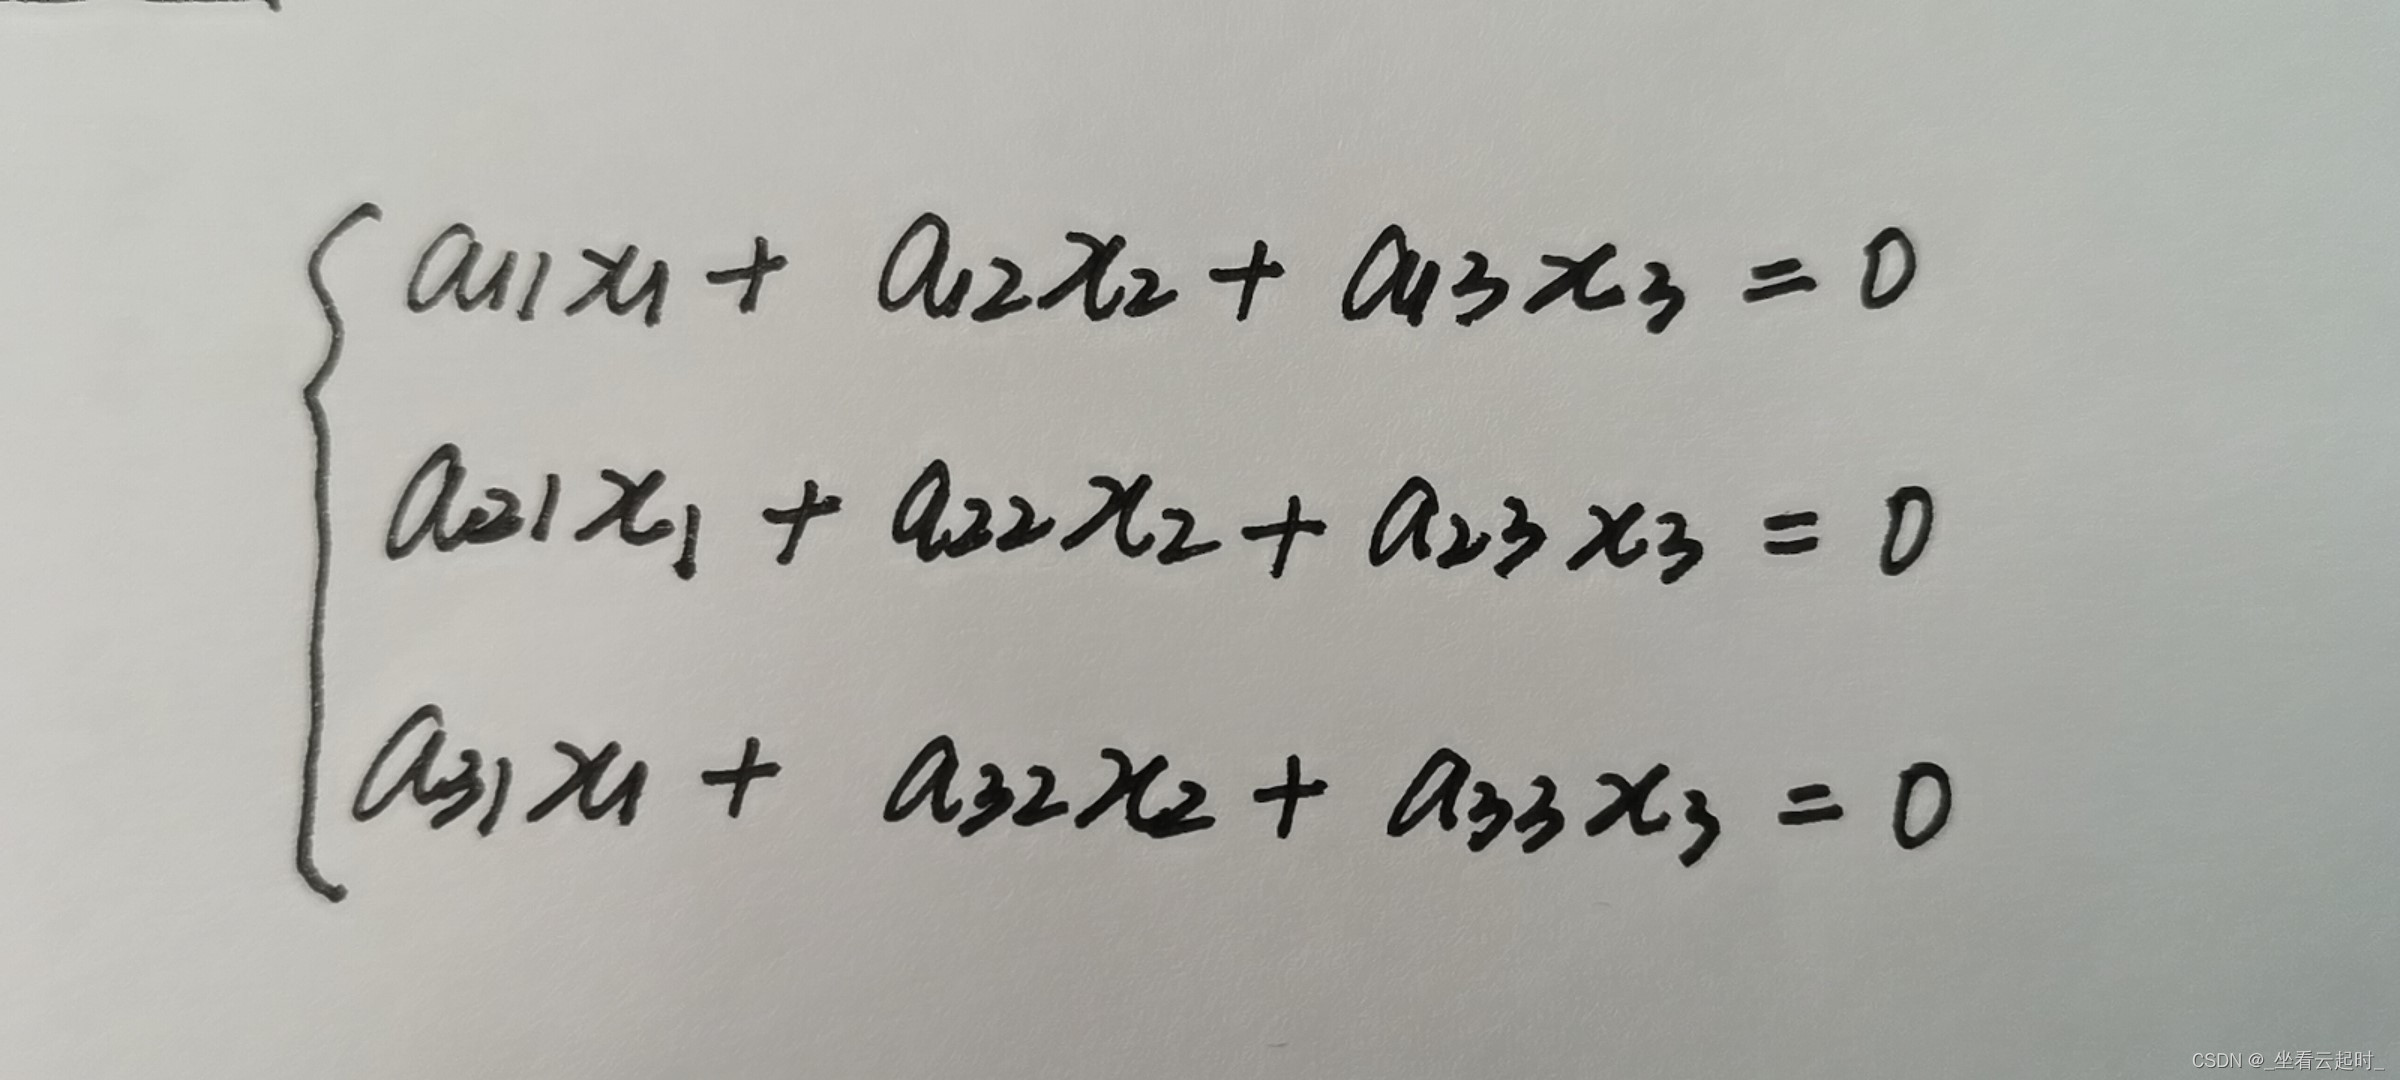 a₁₁x₁ + a₁₂x₂ + a₁₃x₃ = 0
a₂₁x₁ + a₂₂x₂ + a₂₃x₃ = 0
a₃₁x₁ + a₃₂x₂ + a₃₃x₃ = 0
CSDN @_坐看云起时_